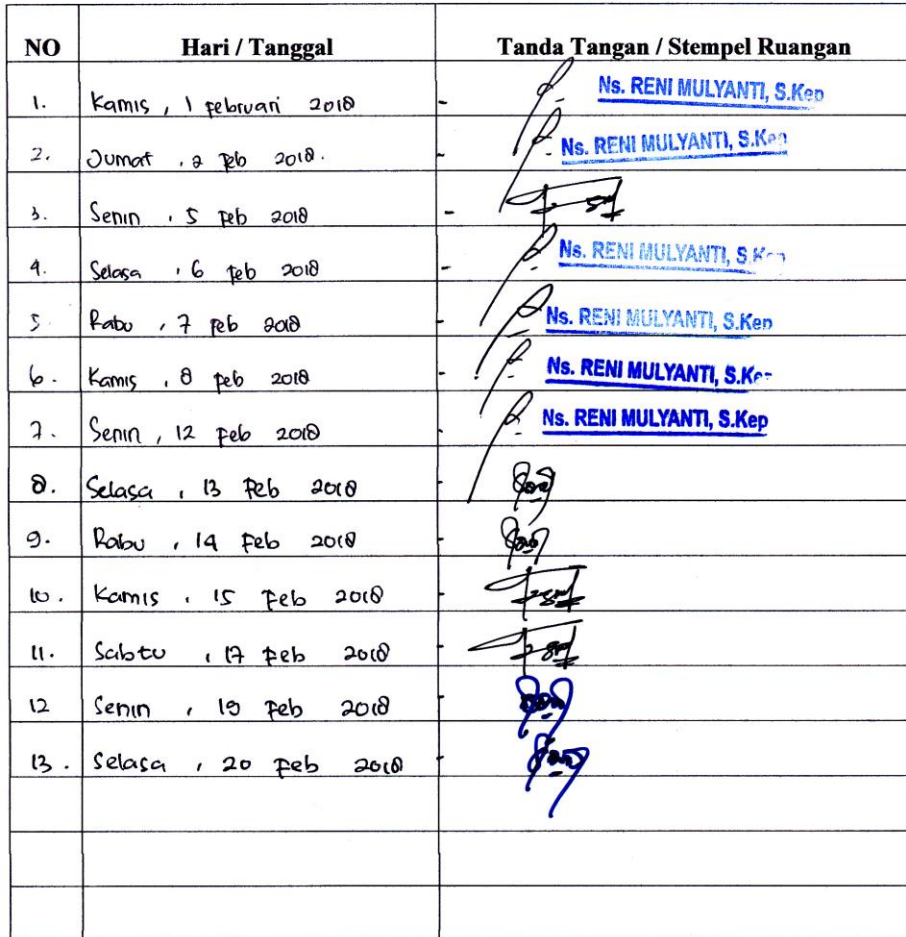 NO Hari / Tanggal Tanda Tangan / Stempel Ruangan
1. Kamis, 1 Februari 2018 - Ns. RENI MULYANTI, S.Kep
2. Jumat, 2 Feb 2018. - Ns. RENI MULYANTI, S.Kep
3. Senin, 5 Feb 2018 -
4. Selasa, 6 Feb 2018 - Ns. RENI MULYANTI, S.Kep
5. Rabu, 7 Feb 2018 - Ns. RENI MULYANTI, S.Kep
6. Kamis, 8 Feb 2018 - Ns. RENI MULYANTI, S.Kep
7. Senin, 12 Feb 2018 - Ns. RENI MULYANTI, S.Kep
8. Selasa, 13 Feb 2018 -
9. Rabu, 14 Feb 2018 -
10. Kamis, 15 Feb 2018 -
11. Sabtu, 17 Feb 2018 -
12 Senin, 19 Feb 2018 -
13. Selasa, 20 Feb 2018 -